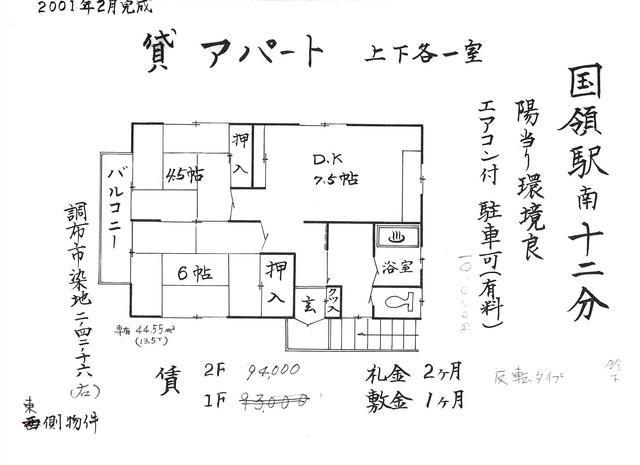 2001年2月完成
貸 アパート 上下各一室
国領駅南十二分
陽当り環境良
エアコン付 駐車可(有料)
10,000円
押入
4.5帖
D.K
7.5帖
バルコニー
6帖
押入
浴室
玄
クツ入
専有 44.55m²
(13.5T)
調布市染地二-四二-十六(右)
東
西側物件
賃 2F 94,000
1F 93,000
礼金 2ヶ月
敷金 1ヶ月
反転タイプ